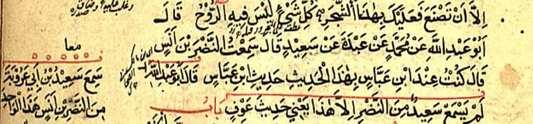 إلا أن تصنع فعليك بهذا الشجر كل شيء ليس فيه الروح قال
أبو عبد الله عن محمد عن عبدة عن سعيد قال سمعت النضر بن أنس
قال كنت عند ابن عباس بهذا الحديث حديث ابن عباس قال أبو عبد الله
لم يسمع سعيد من النضر إلا هذا يعني حديث عوف باب
معا
سمع سعيد بن أبي عروبة
من النضر بن أنس هذا الواحد